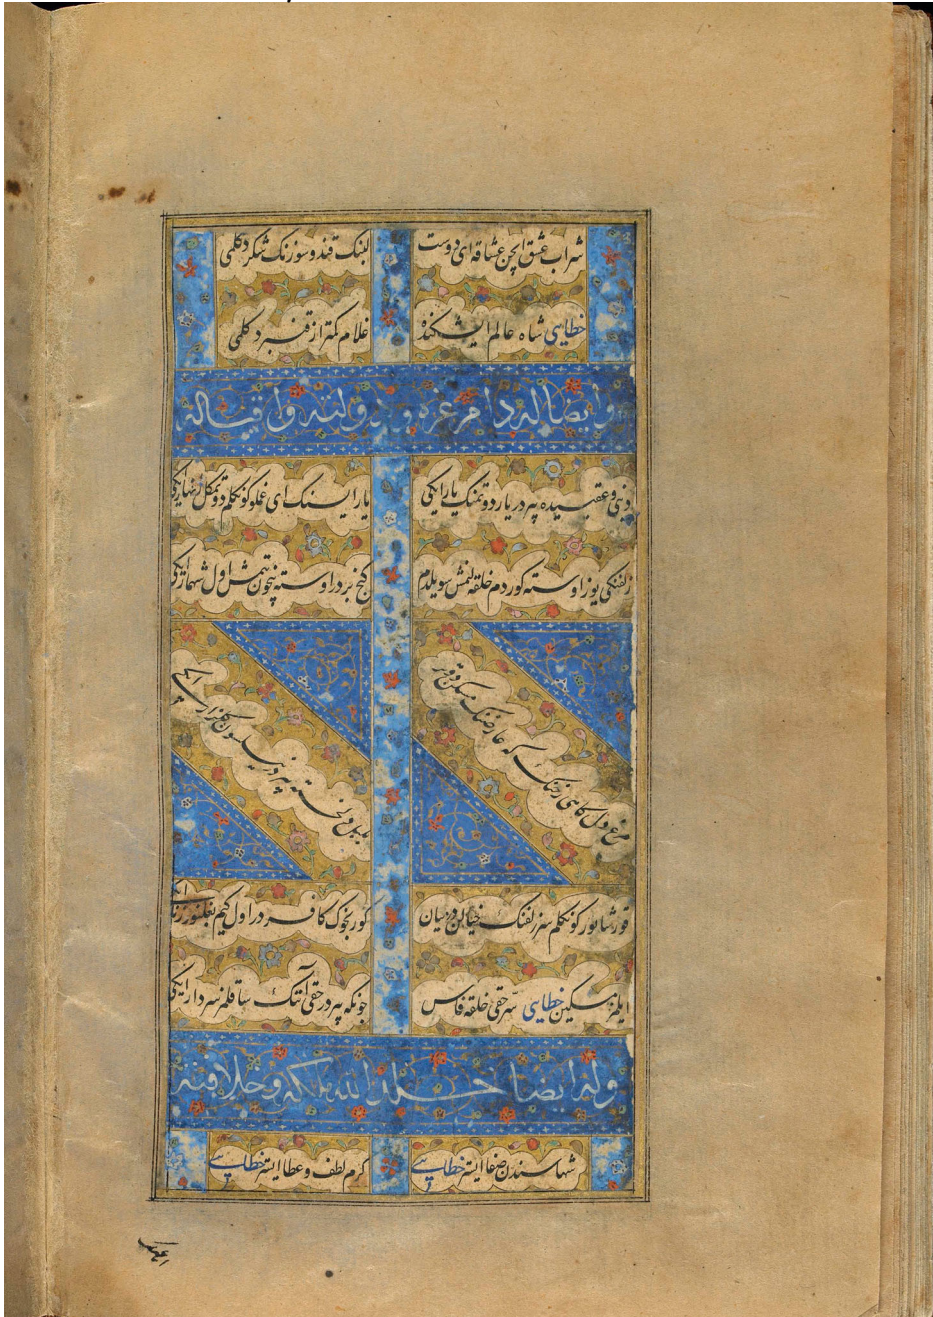 شراب عشق ایچن عشاقه ای دوست
لبنک قند و سوزنک شکر دکلمی
خطایی شاه عالم ایشکنده
غلام کمتر از قنبر دکلمی
وایضا له دام عزه و دولته واقباله
دنیی و عقبیده پیر در یار دوتمنک یار ایکی
یار ایسنک ای غملو کونکلم دوتمکل زنهار ایکی
زلفنکی یوز اوسته کوردم خلقه لنمش سویلدم
کنج بردر اوسته نیچون یتمش اول شهمار ایکی
که عارضنک
بلبل دلخسته پیر در نیلسون کلزار ایکی
کونکلم سر زلفنک خیالن
کور نجوک کافر در اول کیم بغلنور زنار ایکی
ایلمز مسکین خطایی سر حقی خلقه فاش
چونکه پیر در حقی آننک ساقلمز سردار ایکی
وله ایضا خلد الله ملکه وخلافته
شهاسندن صفا ایستر خطایی
کرم لطف و عطا ایستر خطایی